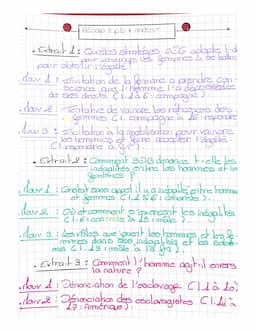 • Extrait 1 : Quelles stratégies ODG adopte t-elle
pour convaincre les femmes à se battre
pour obtenir l'égalité ?
• Mouv 1 : Invitation de la femme à prendre con-
science que l'homme l'a dépossédée
de ses droits (l.1 à 6 : compagne)
• Mouv 2 : Tentative de vaincre les réticences des
femmes (l. compagne à 12 : répondre
• Mouv 3 : Incitation à la mobilisation pour vaincre
les hommes et faire accepter l'égalité
(l.répondre à
• Extrait 2 : Comment ODG dénonce t-elle les
inégalités entre les hommes et les
femmes ?
• Mouv 1 : Constat sans appel il y a inégalité entre hommes
et femmes (l.1 à 6 :
• Mouv 2 : Où et comment s'exercent les inégalités
(l.6 : à 13 : mâle).
• Mouv 3 : Les rôles que jouent les hommes et les fe-
mmes dans ces inégalités et les
(l.13 : mâle à
• Extrait 3 : Comment l'homme agit-il envers
la nature ?
• Mouv 1 : Dénonciation de l'esclavage (l.1 à 10)
• Mouv 2 : Dénonciation des esclavagistes (l.11 à
17 : Amérique).